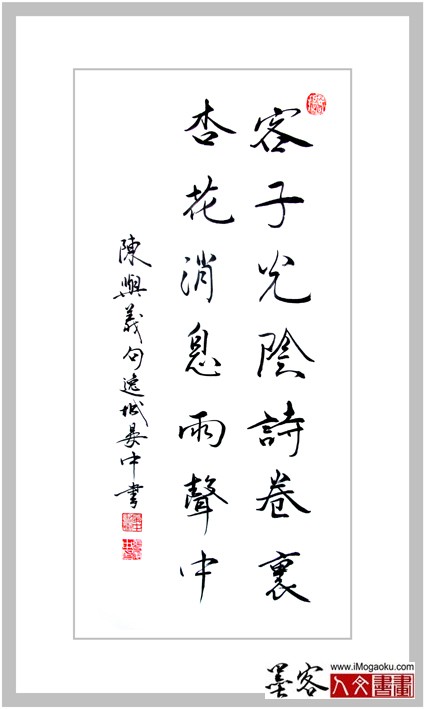 客子光陰詩卷裏
杏花消息雨聲中
陳與義句逸城晏中書
墨客
www.iMogaoku.com
人文書畫